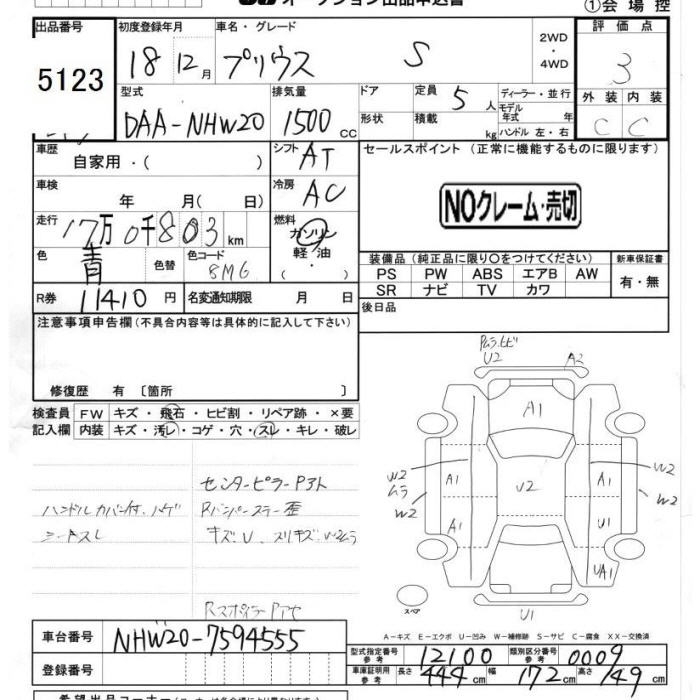 オークション出品申込書
①会場控
出品番号 初度登録年月 車名・グレード 評価点
5123 18 12月 プリウス S 2WD ・ 4WD 3
型式 排気量 ドア 定員 5人 ディーラー・並行 外装 内装
DAA-NHW20 1500cc 形状 積載 kg モデル年式 年 C C
ハンドル 左・右
車歴 自家用・( ) シフト AT セールスポイント (正常に機能するものに限ります)
車検 年 月( 日) 冷房 AC NOクレーム・売切
走行 17万0千803km 燃料 ガソリン
軽・油
・( )
色 青 色替 色コード 8M6
装備品 (純正品に限り○をつけてください) 新車保証書
PS PW ABS エアB AW 有・無
SR ナビ TV カワ
R券 11410円 名変通知期限 月 日 後日品
注意事項申告欄(不具合内容等は具体的に記入して下さい)
修復歴 有 〔箇所 〕
検査員 FW キズ・飛石・ヒビ割・リペア跡・×要
記入欄 内装 キズ・汚レ・コゲ・穴・スレ・キレ・破レ
ハンドルカバー付、ハゲ
シートスレ
センターピラーPアト
Rバンパーステー歪
キズ・U、スリキズ・W2ムラ
RスポイラーPアセ
Pムラ、ヒビ
U2 A2
A1
W2 ムラ W2 A1 A1 U2 A1 U1 UA1 W2 W2
U1
スペア
A-キズ E-エクボ U-凹み W-補修跡 S-サビ C-腐食 XX-交換済
車台番号 NHW20-7594555
型式指定番号 参考 12100 類別区分番号 参考 0009
登録番号
車庫証明用 参考 長さ 444cm 幅 172cm 高さ 149cm
希望出品コーナー